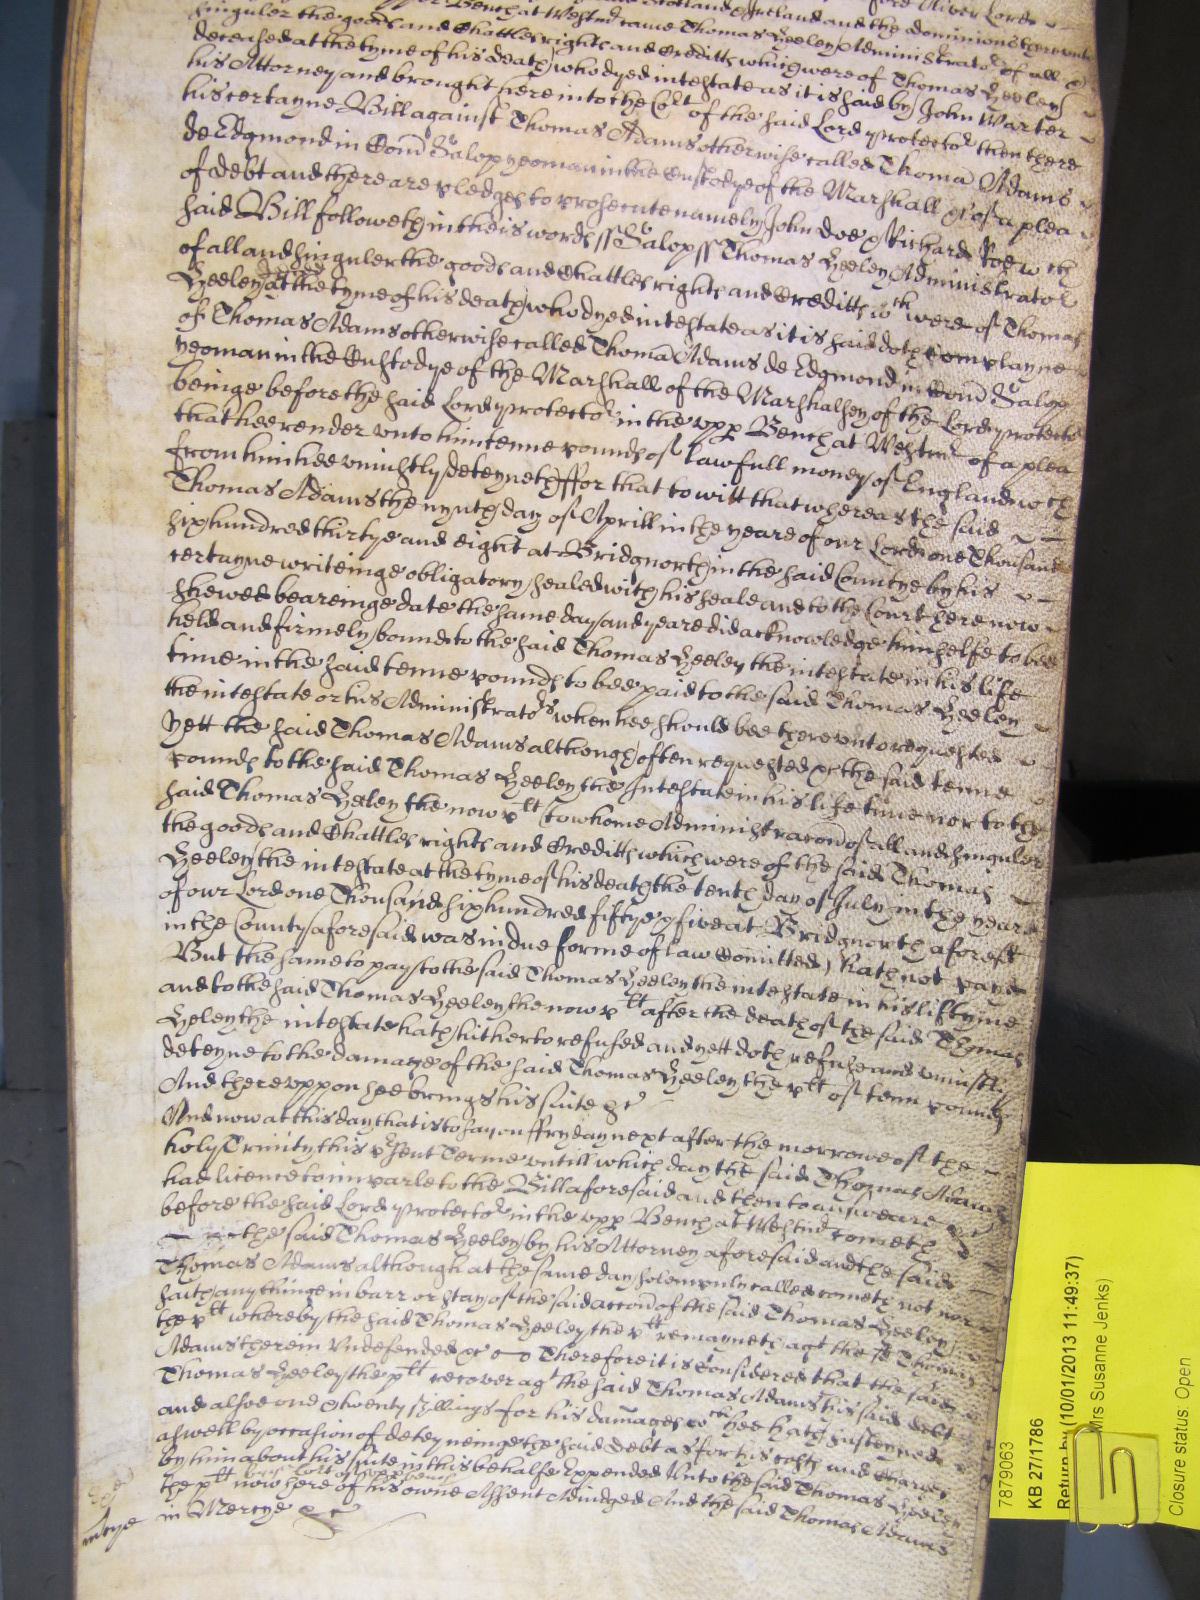 Oliver Lord
Bench at Westmr came Thomas Yeeley Administrator of all &
singuler the goods and Chattles rights and Creditts which were of Thomas Yeeley
deceased at the tyme of his death who dyed intestate as it is said by John Warter
his Attorney and brought here into the Cort of the said Lord protector then there
his certayne Bill against Thomas Adams otherwise called Thoma Adams
de Edgmond in Com Salop yeoman in the Custodye of the Marshall &c of a plea
of debt and there are pledges to prosecute namely John Doe & Richard Roe wch
said Bill followeth in theis words ss Salop ss Thomas Yeeley Administrator
of all and singuler the goods and Chattles rights and Creditts wch were of Thomas
Yeeley at the tyme of his death who dyed intestate as it is said doth complayne
of Thomas Adams otherwise called Thoma Adams de Edgmond in Com Salop
yeoman in the Custodye of the Marshall of the Marshalsey of the Lord protector
beinge before the said Lord protector in the upp Bench at Westmr of a plea
that hee render unto him tenne pounds of lawfull money of England wch
from him hee uniustly deteyneth ffor that to witt that whereas the said
Thomas Adams the nynth day of Aprill in the yeare of our Lord one Thousand
six hundred thirtye and eight at Bridgnorth in the said Countye by his
certayne writeinge obligatory sealed with his seale and to the Court here now
shewed beareinge date the same day and yeare did acknowledge himselfe to bee
held and firmely bound to the said Thomas Yeeley the intestate in his life
time in the said tenne pounds to bee paid to the said Thomas Yeeley
the intestate or his Administrators when hee should bee thereunto requested
yett the said Thomas Adams although often requested &c the said tenne
pounds to the said Thomas Yeeley the Intestate in his life time nor to the
said Thomas Yeeley the now plt (to whome Administracon of all and singuler
the goods and Chattles rights and Creditts which were of the said Thomas
Yeeley the intestate at the tyme of his death the tenth day of July in the yeare
of our Lord one Thousand six hundred fiftye & five at Bridgnorth aforesd
in the County aforesaid was in due forme of law Comitted) hath not payd
But the same to pay to the said Thomas Yeeley the intestate in his lifetyme
and to the said Thomas Yeeley the now plt after the death of the said Thomas
Yeeley the intestate hath hitherto refused and yett doth refuse and uniustly
deteyne to the damage of the said Thomas Yeeley the plt of tenn pounds
And thereuppon hee brings his suite &c
And now at this day that is to say on ffryday next after the morrowe of the
holy Trinity this psent Terme untill which day the said Thomas Adams
had licence to imparle to the Bill aforesaid and then to answeare &c
before the said Lord protector in the upp Bench at Westmr cometh
the said Thomas Yeeley by his Attorney aforesaid and the said
Thomas Adams although at the same day solemnly called cometh not nor
saith any thinge in barr or stay of the said accon of the said Thomas Yeeley
the plt whereby the said Thomas Yeeley the plt remayneth agt the sd Thomas
Adams therein Undefended &c Therefore it is Considered that the said
Thomas Yeeley the plt recover agt the said Thomas Adams his said debt
and alsoe one & twenty shillings for his damages wch hee hath susteyned
aswell by occasion of deteyneinge the said debt as for his costs and Charges
by him about his suite in this behalfe Expended Unto the said Thomas Yeeley
the plt now here of his owne Assent Adiudged And the said Thomas Adams
in Mercye &c
mcye
7879063
KB 27/1786
Return by (10/01/2013 11:49:37)
Mrs Susanne Jenks)
Closure status: Open